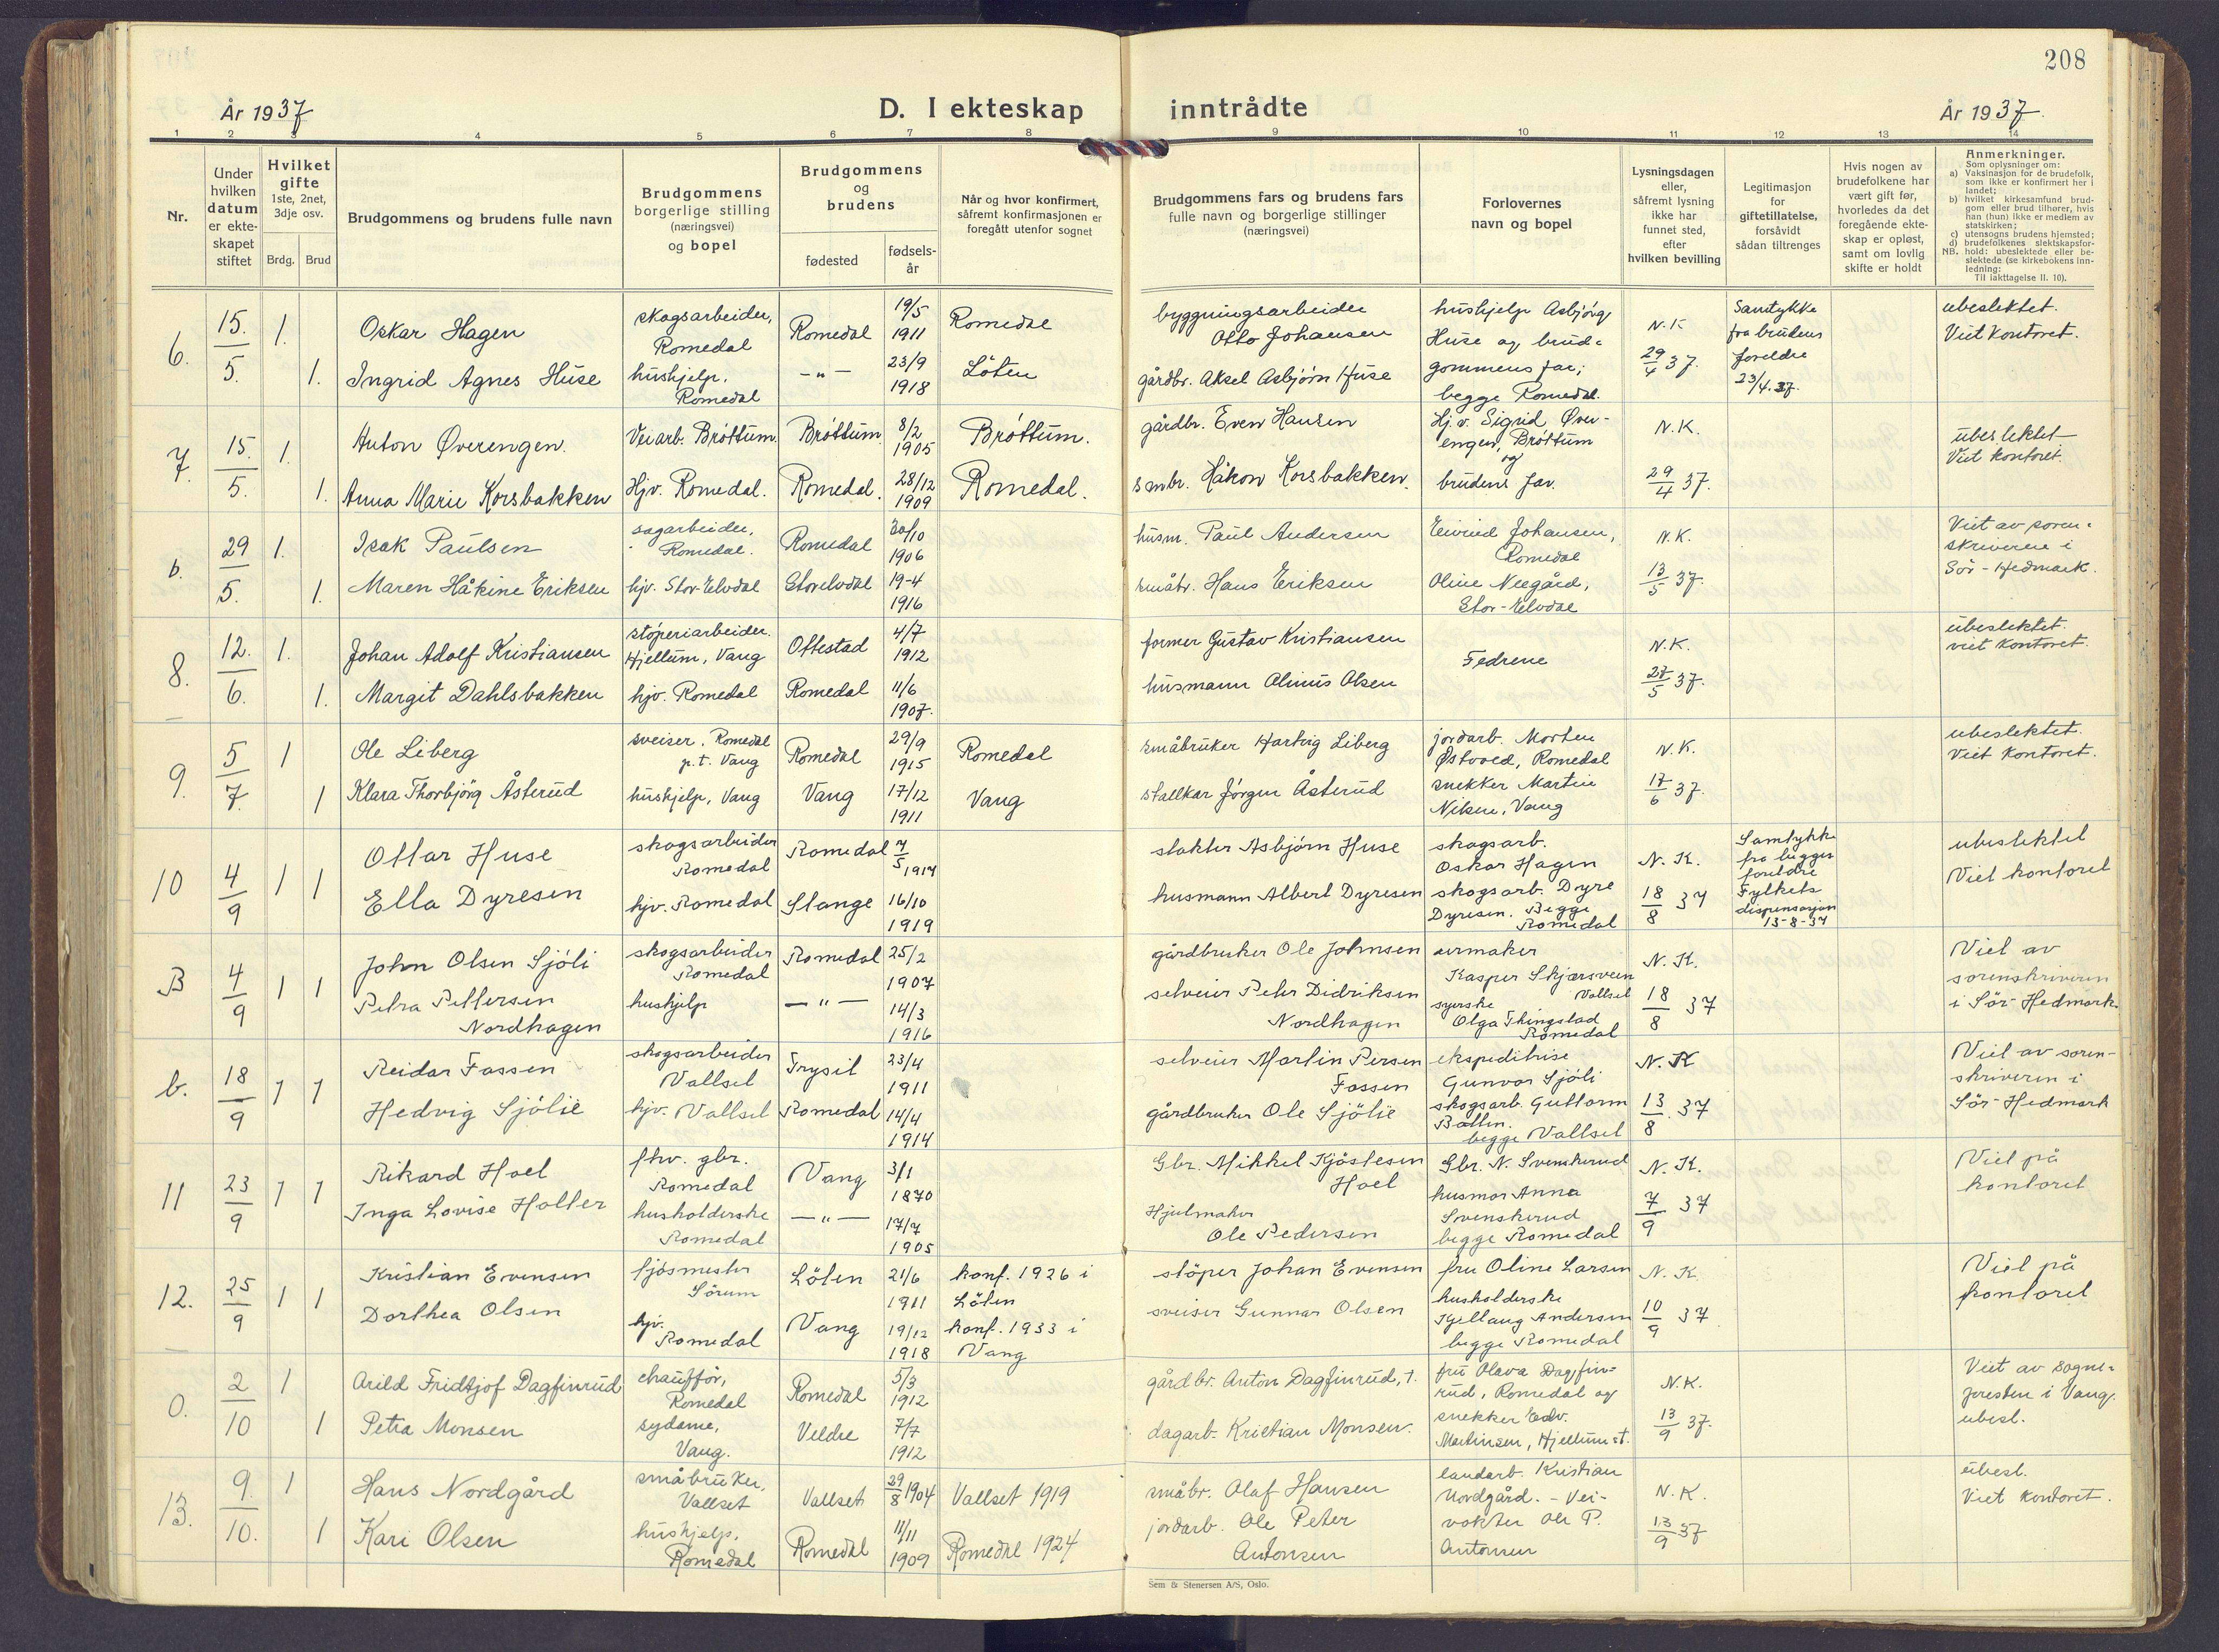 208
År 1937
D. I ekteskap inntrådte
År 1937.
1 2 3 4 5 6 7 8 9 10 11 12 13 14
Nr.
Under hvilken datum er ekte-skapet stiftet
Hvilket gifte 1ste, 2net, 3dje osv.
Brdg. Brud
Brudgommens og brudens fulle navn
Brudgommens borgerlige stilling (næringsvei) og bopel
Brudgommens og brudens
fødested
fødsels-år
Når og hvor konfirmert, såfremt konfirmasjonen er foregått utenfor sognet
Brudgommens fars og brudens fars fulle navn og borgerlige stillinger (næringsvei)
Forlovernes navn og bopel
Lysningsdagen eller, såfremt lysning ikke har funnet sted, efter hvilken bevilling
Legitimasjon for giftetillatelse, forsåvidt sådan tiltrenges
Hvis nogen av brudefolkene har vært gift før, hvorledes da det foregående ekte-skap er opløst, samt om lovlig skifte er holdt
Anmerkninger.
Som oplysninger om:
a) Vaksinasjon for de brudefolk, som ikke er konfirmert her i landet;
b) hvilket kirkesamfund brud-gom eller brud tilhører, hvis han (hun) ikke er medlem av statskirken;
c) utensogns brudens hjemsted;
d) brudefolkenes slektskapsfor-hold: ubeslektede eller be-slektede (se kirkebokens inn-ledning:
NB. Til iakttagelse II. 10).
6. 15./5. 1. Oskar Hagen skogsarbeider, Romedal Romedal 19/5 1911 Romedal byggningsarbeider Otto Johansen hushjelp Asbjörg Huse og brud-gommens far; begge Romedal. N.K. 29/4 37. Samtykke fra brudens foreldre 23/4.37. ubeslektet. Viet kontoret.
1. Ingrid Agnes Huse hushjelp, Romedal -"- 23/9 1918 Löten gårdbr. Aksel Asbjörn Huse
7. 15./5. 1. Anton Øverengen. Veiarb. Bröttum. Bröttum. 8/2 1905 Bröttum. gårdbr. Even Hansen Hj.v. Sigrid Över-engen, Bröttum og brudens far. N.K. 29/4 37. ubeslektet Viet kontoret.
1. Anna Marie Korsbakken Hjv. Romedal. Romedal. 28/12 1909 Romedal. smbr. Håkon Korsbakken.
b. 29/5. 1. Isak Paulsen sagarbeider, Romedal. Romedal 30/10 1906 husm. Paul Andersen Eivind Johansen, Romedal N.K. 13/5 37. Viet av soren-skriveren i Sör-Hedmark.
1. Maren Håkine Eriksen hjv. Stor-Elvdal Storelvdal 19-4 1916 småbr. Hans Eriksen Oline Neegård, Stor-Elvdal
8. 12./6. 1. Johan Adolf Kristiansen stöperiarbeider. Hjellum, Vang Ottestad 4/7 1912 former Gustav Kristiansen Fedrene N.K. 27/5 37. ubeslektet. viet kontoret.
1. Margit Dahlsbakken hjv. Romedal Romedal 11/6 1907. husmann Olinus Olsen
9. 5/7. 1 Ole Liberg sveiser. Romedal p.t. Vang Romedal 29/9 1915 Romedal småbruker Hartvig Liberg jordarb. Morten Østoved, Romedal N.K. 17/6 37. ubeslektet. Viet kontoret.
1 Klara Thorbjörg Åsterud hushjelp, Vang Vang 17/12 1911 Vang stallkar Jörgen Åsterud snekker Martin Nilsen, Vang
10 4/9 1 1 Ottar Huse skogsarbeider Romedal Romedal 7/5 1914 slakter Asbjörn Huse skogsarb. Oskar Hagen N.K. 18/8 37 Samtykke fra begges foreldre Fylkets dispensasjon 13-8-37 ubeslektet Viet kontoret
Ella Dyresen hjv. Romedal Stange 16/10 1919 husmann Albert Dyresen skogsarb. Dyre Dyresen. Begge Romedal
B 4/9 1 1 John Olsen Sjöli skogsarbeider Romedal Romedal 25/2 1907 gårdbruker Ole Johnsen urmaker Kasper Skjærsveen Vallset N.K. 18/8 37 Viet av sorenskriveren i Sör-Hedmark.
Petra Pettersen Nordhagen hushjelp -"- 14/3 1916 selveier Peter Didriksen Nordhagen syerske Olga Thingstad Romedal
b. 18/9 1 1 Reidar Fassen skogsarbeider Vallset Trysil 23/4 1911 selveier Martin Persen Fassen ekspeditrise Gunvor Sjöli N.K 13/8. 37 Viet av soren-skriveren i Sör-Hedmark
Hedvig Sjölie hjv. Vallset Romedal 14/4 1914 gårdbruker Ole Sjölie skogsarb. Guttorm begge Vallset
11 23/9 1 1 Rikard Hoel fhv. gbr. Romedal Vang 3/1 1870 Gbr. Mikkel Kjöstesen Hoel Gbr. N. Svenskerud N.K. 7/9 37 Viet på kontoret
Inga Lovise Holter husholderske Romedal -"- 17/7 1905 Hjulmaker Ole Pedersen husmor Anna Svenskerud begge Romedal
12. 25/9 1 1 Kristian Evensen fjösmester Sörum Löten 21/6 1911 konf. 1926 i Löten stöper Johan Evensen fru Oline Larsen N.K. 10/9 37 Viet på kontoret
Dorthea Olsen hjv. Romedal Vang 19/12 1918 konf. 1933 i Vang sveiser Gunnar Olsen husholderske Kjellaug Andersen begge Romedal
O. 2/10 1 Arild Fridtjof Dagfinrud chaufför, Romedal Romedal 5/3 1912 gårdbr. Anton Dagfinrud, t. fru Olava Dagfin-rud, Romedal og N.K. 13/9 37. Viet av sogne-presten i Vang. ubesl.
1 Petra Monsen sydame, Vang. Veldre 7/7 1912 dagarb. Kristian Monsen. snekker Edv. Martinsen, Hjellum st.
13. 9/10. 1 Hans Nordgård småbruker, Vallset Vallset 29/8 1904 Vallset 1919 småbr. Olaf Hansen landarb. Kristian Nordgård. - Vei-vokter Ole P. Antonsen N.K. 13/9 37 ubesl. Viet kontoret.
1 Kari Olsen hushjelp, Romedal Romedal 11/11 1909 Romedal 1924 jordarb. Ole Peter Antonsen
Sem & Stenersen A/S, Oslo.